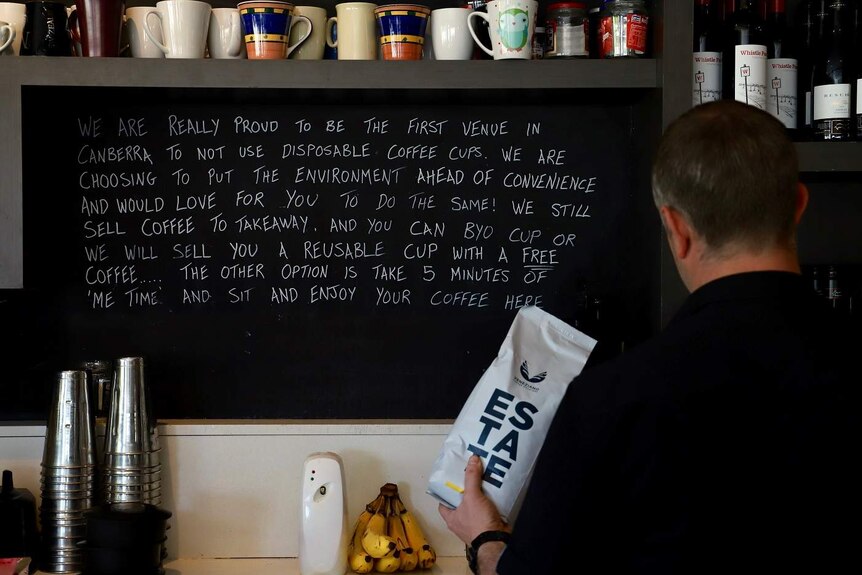 WE ARE REALLY PROUD TO BE THE FIRST VENUE IN
CANBERRA TO NOT USE DISPOSABLE COFFEE CUPS. WE ARE
CHOOSING TO PUT THE ENVIRONMENT AHEAD OF CONVENIENCE
AND WOULD LOVE FOR YOU TO DO THE SAME! WE STILL
SELL COFFEE TO TAKEAWAY, AND YOU CAN BYO CUP OR
WE WILL SELL YOU A REUSABLE CUP WITH A FREE
COFFEE.... THE OTHER OPTION IS TAKE 5 MINUTES OF
'ME TIME' AND SIT AND ENJOY YOUR COFFEE HERE
VENEZIANO
ES
TA
TE